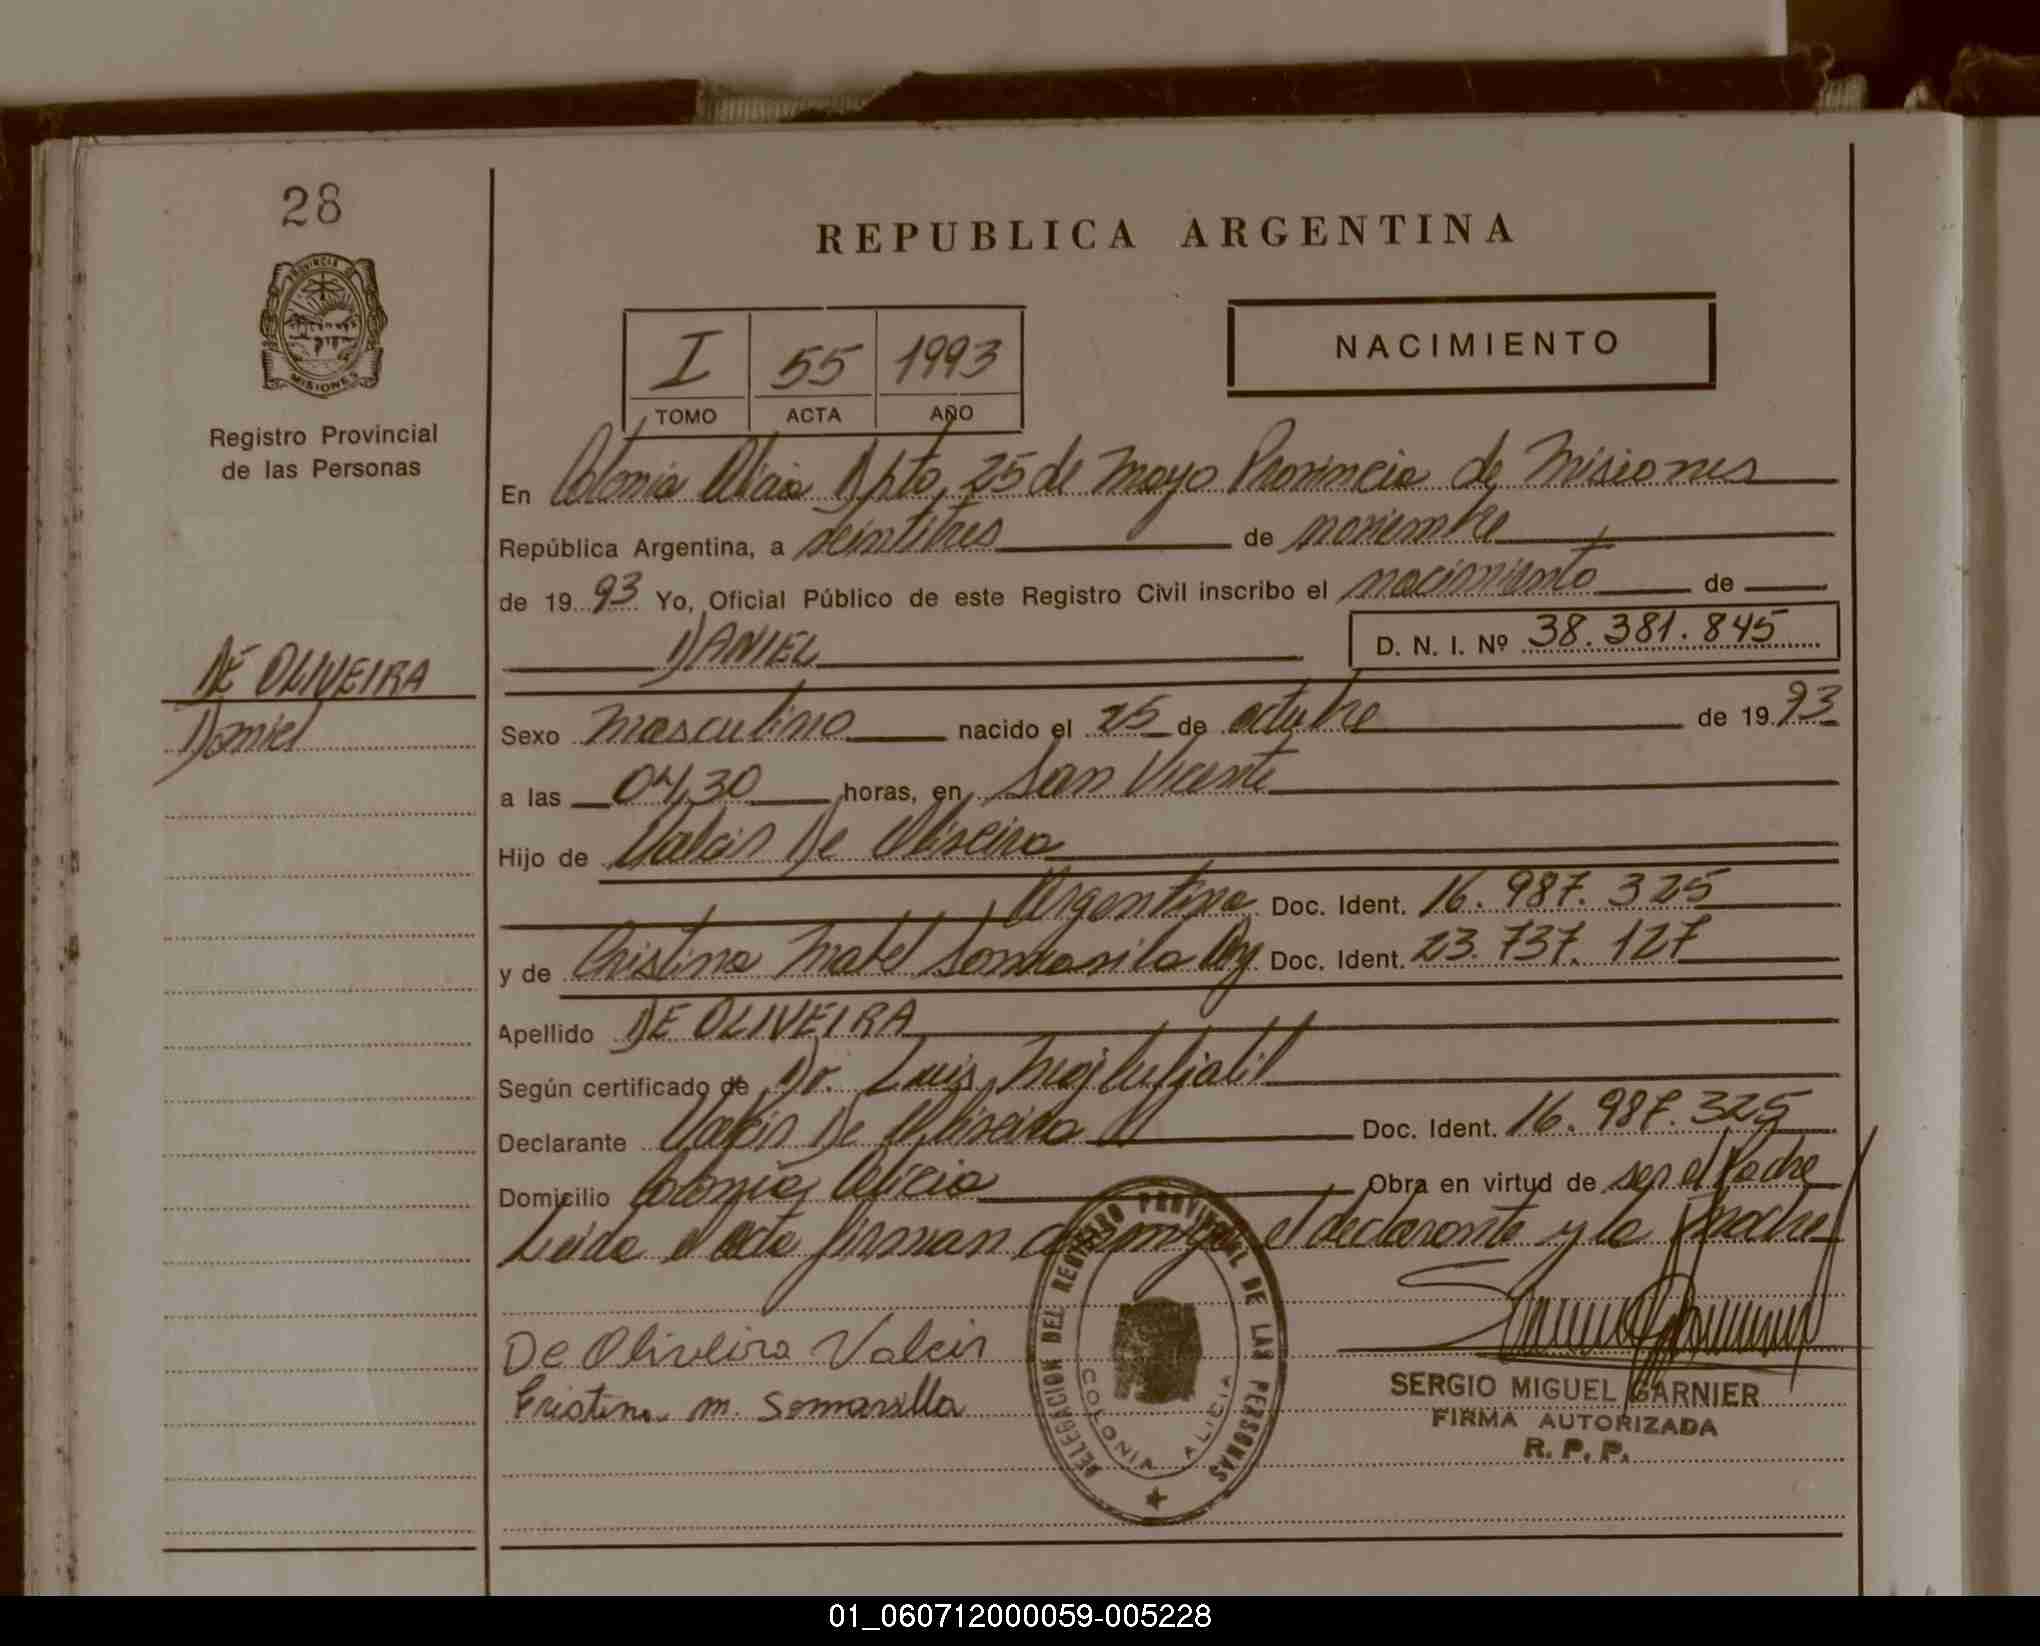 28
PROVINCIA DE
MISIONES
Registro Provincial
de las Personas
DE OLIVEIRA
Daniel
REPUBLICA ARGENTINA
I 55 1993
TOMO ACTA AÑO
NACIMIENTO
En Colonia Alicia Dpto. 25 de Mayo Provincia de Misiones
República Argentina, a veintitres de noviembre
de 1993 Yo, Oficial Público de este Registro Civil inscribo el nacimiento de
DANIEL D. N. I. Nº 38.381.845
Sexo masculino nacido el 25 de octubre de 1993
a las 04,30 horas, en San Vicente
Hijo de Valcir De Oliveira
Argentino Doc. Ident. 16.987.325
y de Cristina Mabel Arg. Doc. Ident. 23.737.127
Apellido DE OLIVEIRA
Según certificado de Dr. Luis
Declarante Valcir De Oliveira Doc. Ident. 16.987.325
Domicilio Colonia Alicia Obra en virtud de ser el Padre
Leida el acta firman conmigo el declarante y la madre
De Oliveira Valcir
Cristina M.
DELEGACION DEL REGISTRO PROVINCIAL DE LAS PERSONAS
COLONIA ALICIA
SERGIO MIGUEL GARNIER
FIRMA AUTORIZADA
R. P. P.
01_060712000059-005228